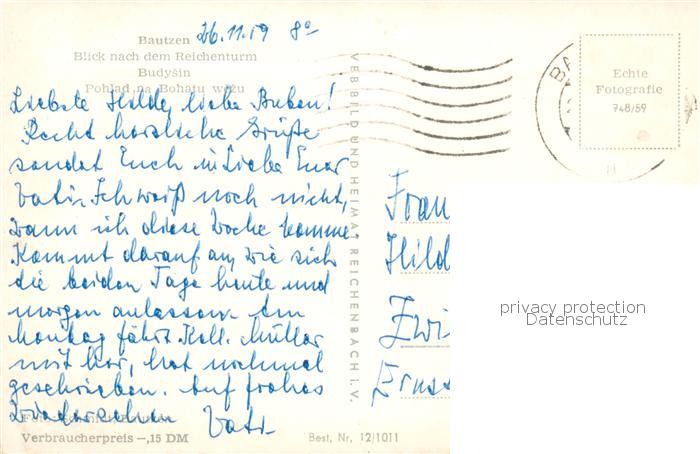 26.11.19 8°
Bautzen
Blick nach dem Reichenturm
Budyšin
Pohlad na Bohatu wěžu
Liebste Hilde, liebe Buben!
Recht herzliche Grüße
sendet Euch in Liebe Euer
Vati. Ich weiß noch nicht,
wann ich diese Woche komme.
Kommt darauf an, wie sich
die beiden Tage heute und
morgen anlassen. Am
Montag fährt Koll. Müller
mit her, hat nochmal
geschrieben. Auf frohes
Wiedersehen Vati
Verbraucherpreis –,15 DM
Best. Nr. 12/1011
VEB BILD UND HEIMAT REICHENBACH i. V.
Echte
Fotografie
748/59
BA
Frau
Hild
Zwi
privacy protection
Datenschutz